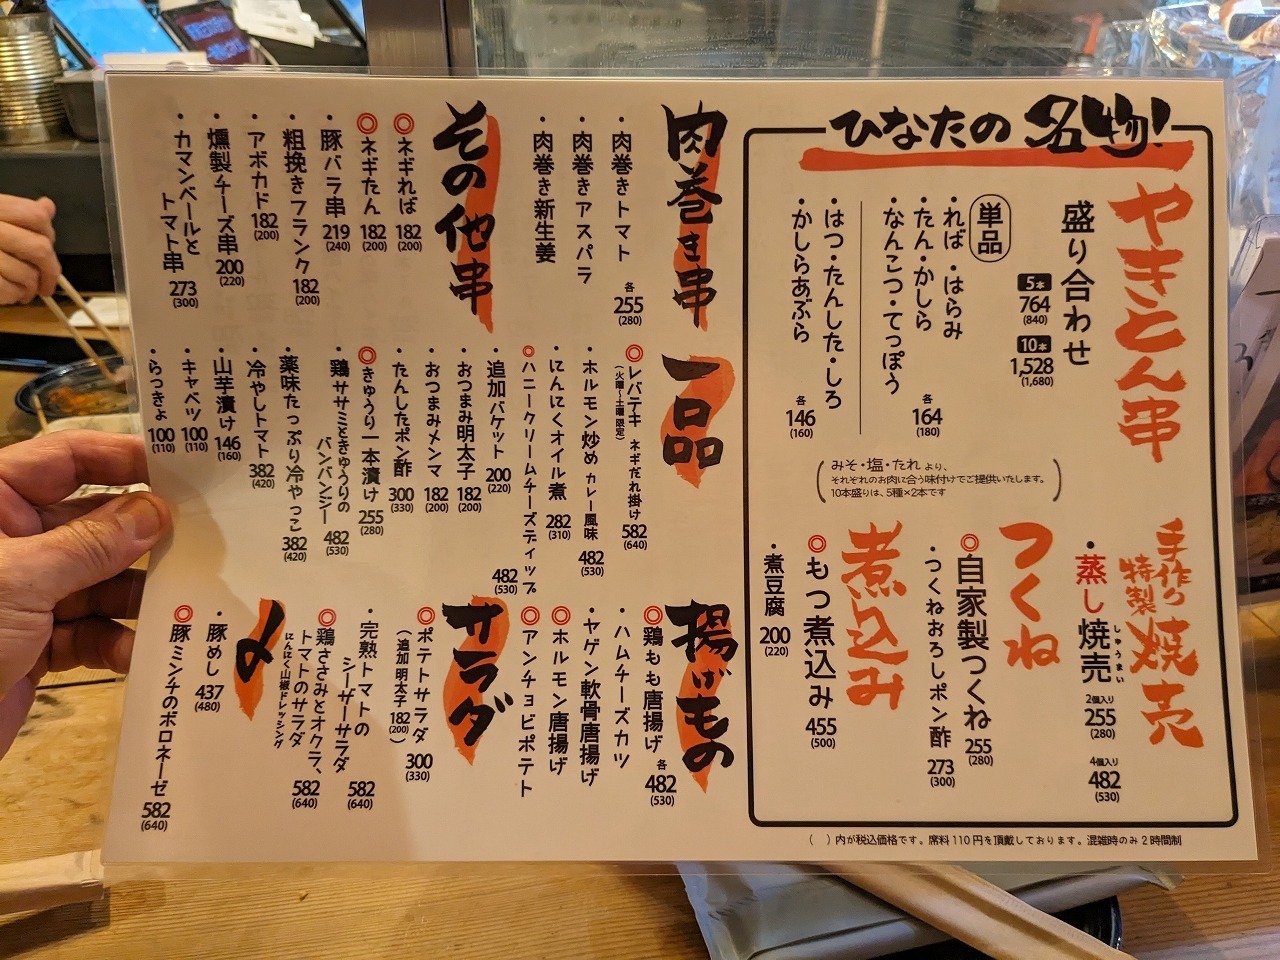 ひなたの名物!
やきとん串
盛り合わせ
5本
764
(840)
10本
1,528
(1,680)
単品
・れば・はらみ
・たん・かしら
・なんこつ・てっぽう
各
164
(180)
・はつ・たんした・しろ
・かしらあぶら
各
146
(160)
みそ・塩・たれ より、
それぞれのお肉に合う味付けでご提供いたします。
10本盛りは、5種×2本です
手作り
特製
焼売
・蒸し焼売
しゅうまい
2個入り
255
(280)
4個入り
482
(530)
つくね
◎自家製つくね
255
(280)
・つくねおろしポン酢
273
(300)
煮込み
◎もつ煮込み
455
(500)
・煮豆腐
200
(220)
( )内が税込価格です。席料110円を頂戴しております。混雑時のみ2時間制
肉巻き串
・肉巻きトマト
・肉巻きアスパラ
・肉巻き新生姜
各
255
(280)
その他串
◎ネギれば
182
(200)
◎ネギたん
182
(200)
・豚バラ串
219
(240)
・粗挽きフランク
182
(200)
・アボカド
182
(200)
・燻製チーズ串
200
(220)
・カマンベールと
トマト串
273
(300)
一品
◎レバテキ ネギだれ掛け
(火曜〜土曜限定)
582
(640)
・ホルモン炒め カレー風味
482
(530)
・にんにくオイル煮
282
(310)
◎ハニークリームチーズディップ
482
(530)
・追加バケット
200
(220)
・おつまみ明太子
182
(200)
・おつまみメンマ
182
(200)
・たんしたポン酢
300
(330)
◎きゅうり一本漬け
255
(280)
・鶏ササミときゅうりの
バンバンジー
482
(530)
・薬味たっぷり冷やっこ
382
(420)
・冷やしトマト
382
(420)
・山芋漬け
146
(160)
・キャベツ
100
(110)
・らっきょ
100
(110)
揚げもの
◎鶏もも唐揚げ
・ハムチーズカツ
・ヤゲン軟骨唐揚げ
◎ホルモン唐揚げ
◎アンチョビポテト
各
482
(530)
サラダ
◎ポテトサラダ
300
(330)
(追加 明太子 182
(200))
・完熟トマトの
シーザーサラダ
582
(640)
◎鶏ささみとオクラ、
トマトのサラダ
にんにく山椒ドレッシング
582
(640)
〆
・豚めし
437
(480)
◎豚ミンチのボロネーゼ
582
(640)